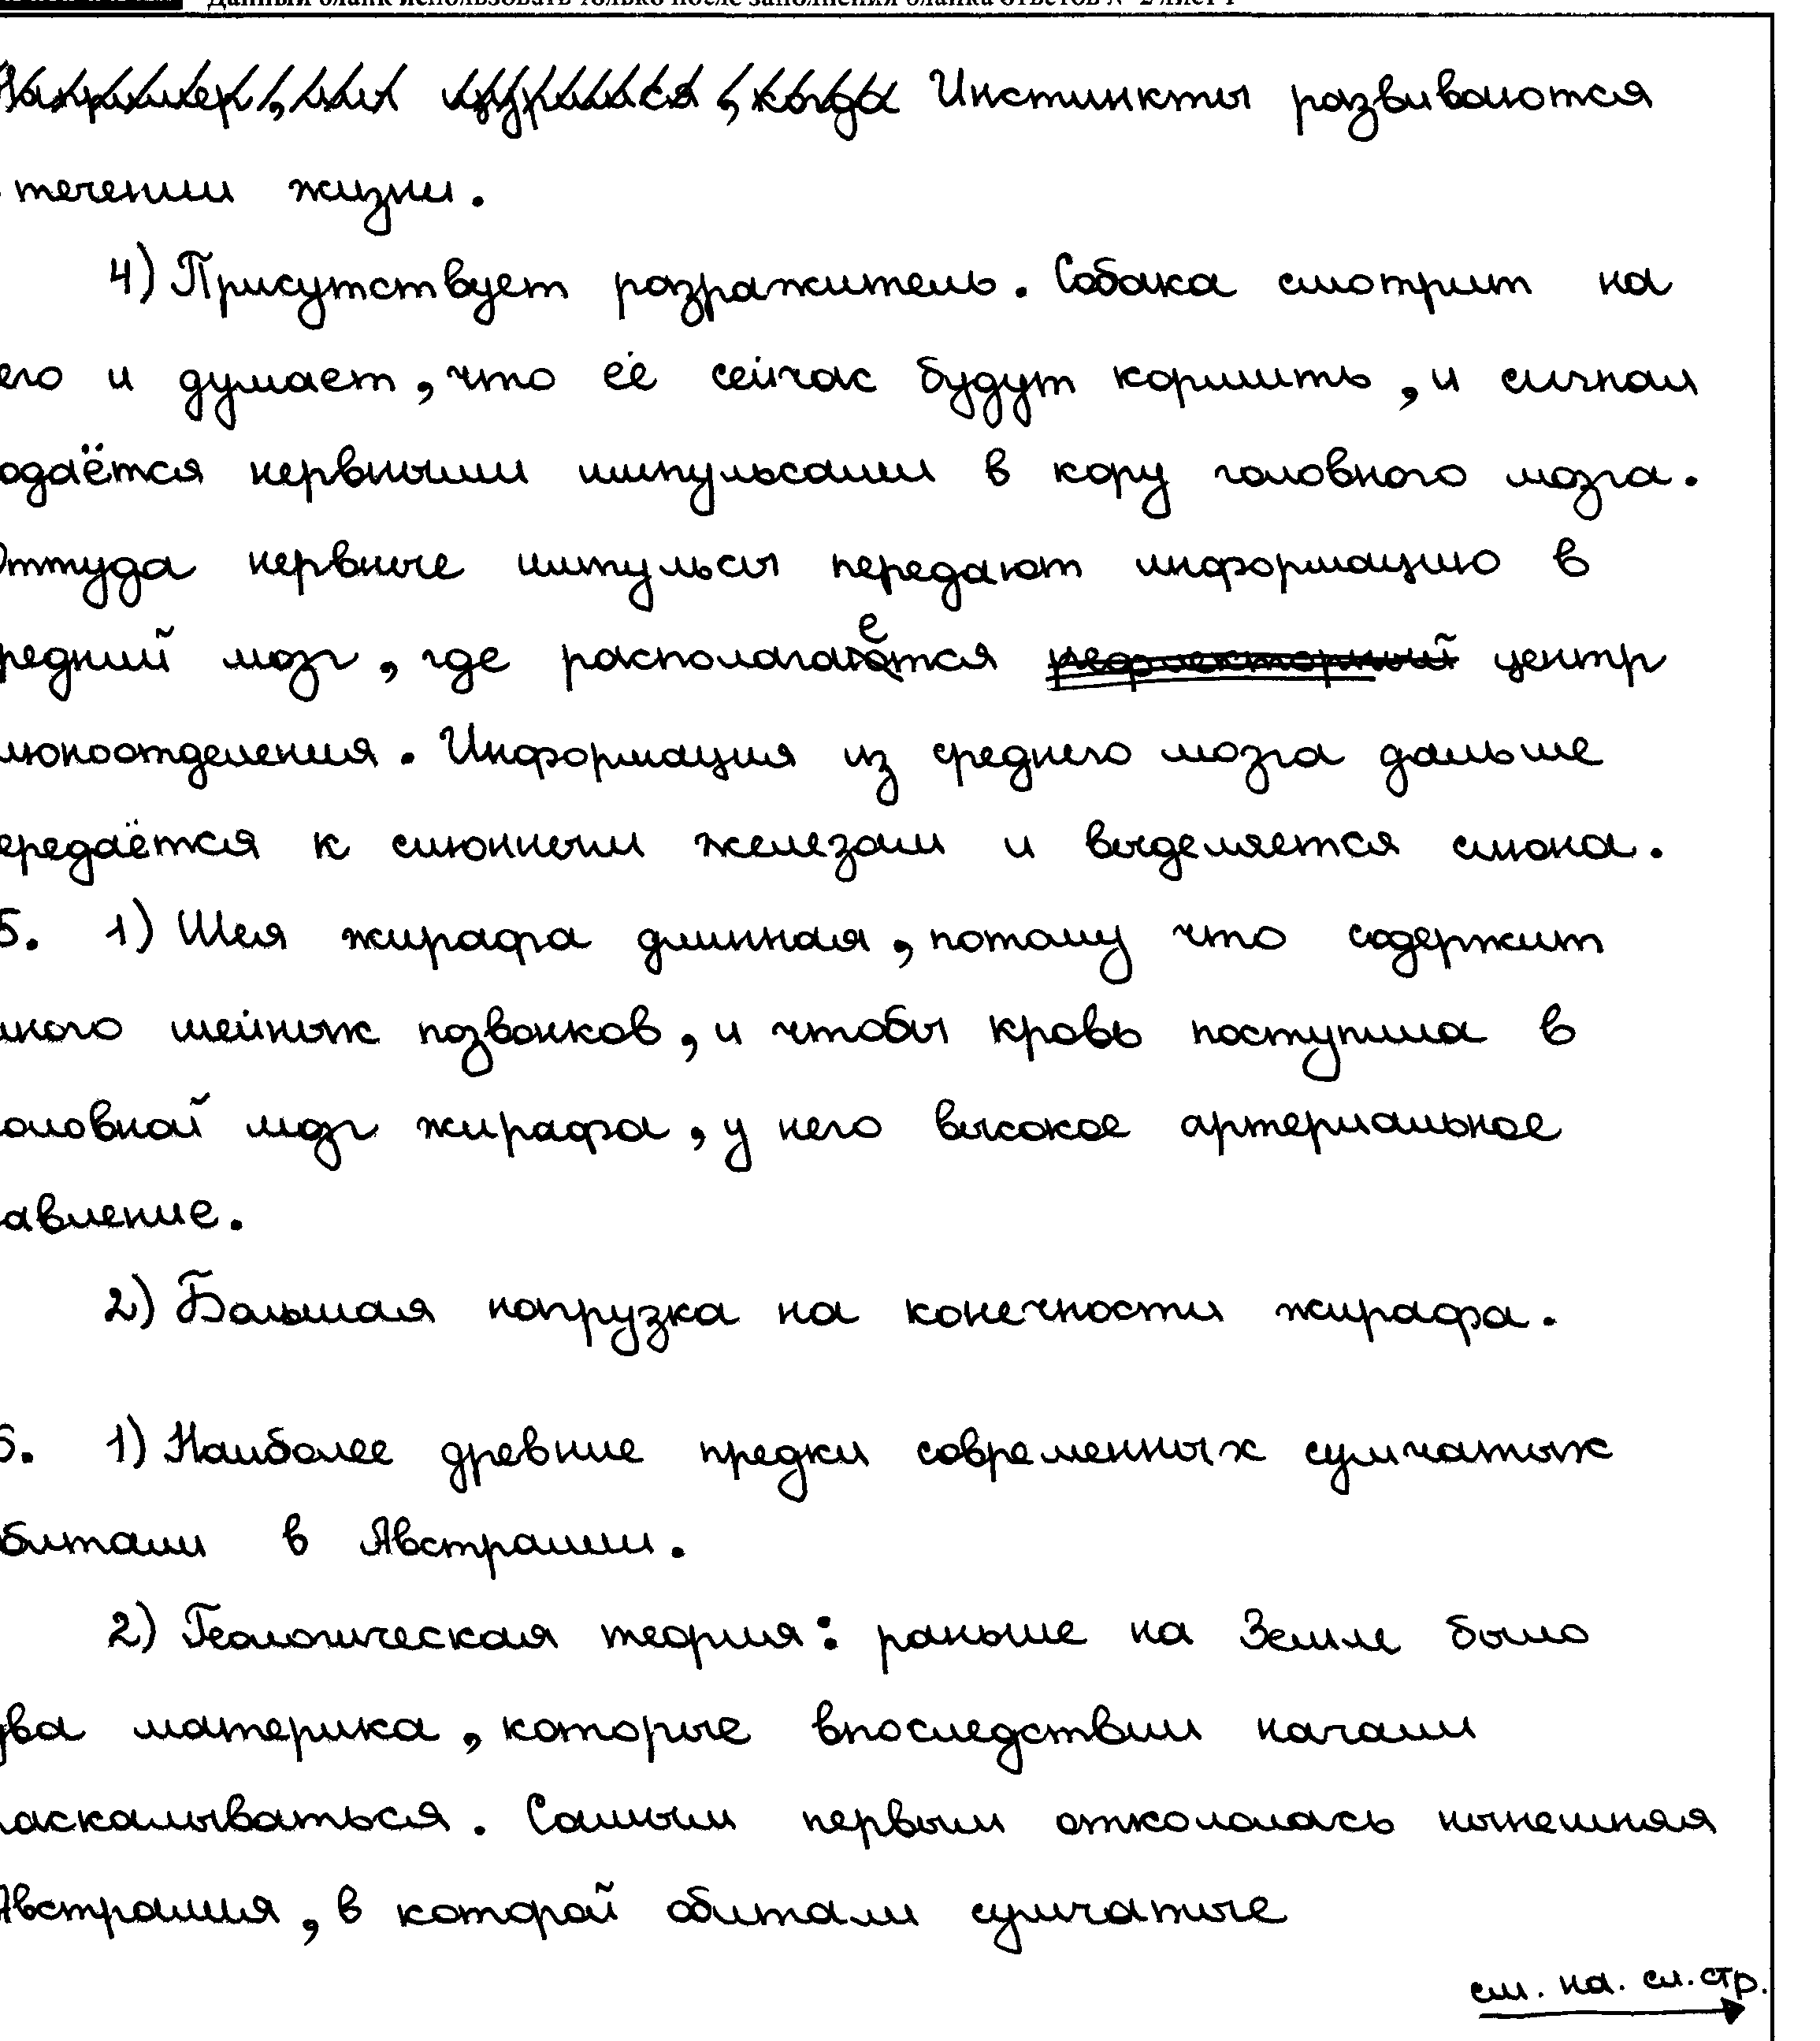 Данный бланк использовать только после заполнения бланка ответов № 2 лист 1
Например, мы щуримся, когда Инстинкты развиваются
течении жизни.
4) Присутствует разражитель. Собака смотрит на
его и думает, что её сейчас будут кормить, и сигнал
одаётся нервными импульсами в кору головного мозга.
Оттуда нервные импульсы передают информацию в
редний мозг, где располагается рефлекторный центр
люноотделения. Информация из среднего мозга дальше
ередаётся к слюнным железам и выделяется слюна.
5. 1) Шея жирафа длинная, потому что содержит
много шейных позвонков, и чтобы кровь поступила в
оловной мозг жирафа, у него высокое артериальное
авление.
2) Большая нагрузка на конечности жирафа.
6. 1) Наиболее древние предки современных сумчатых
битали в Австралии.
2) Геологическая теория: раньше на Земле было
два материка, которые впоследствии начали
аскалываться. Самым первым откололась нынешняя
Австралия, в которой обитали сумчатые
см. на. сл. стр.